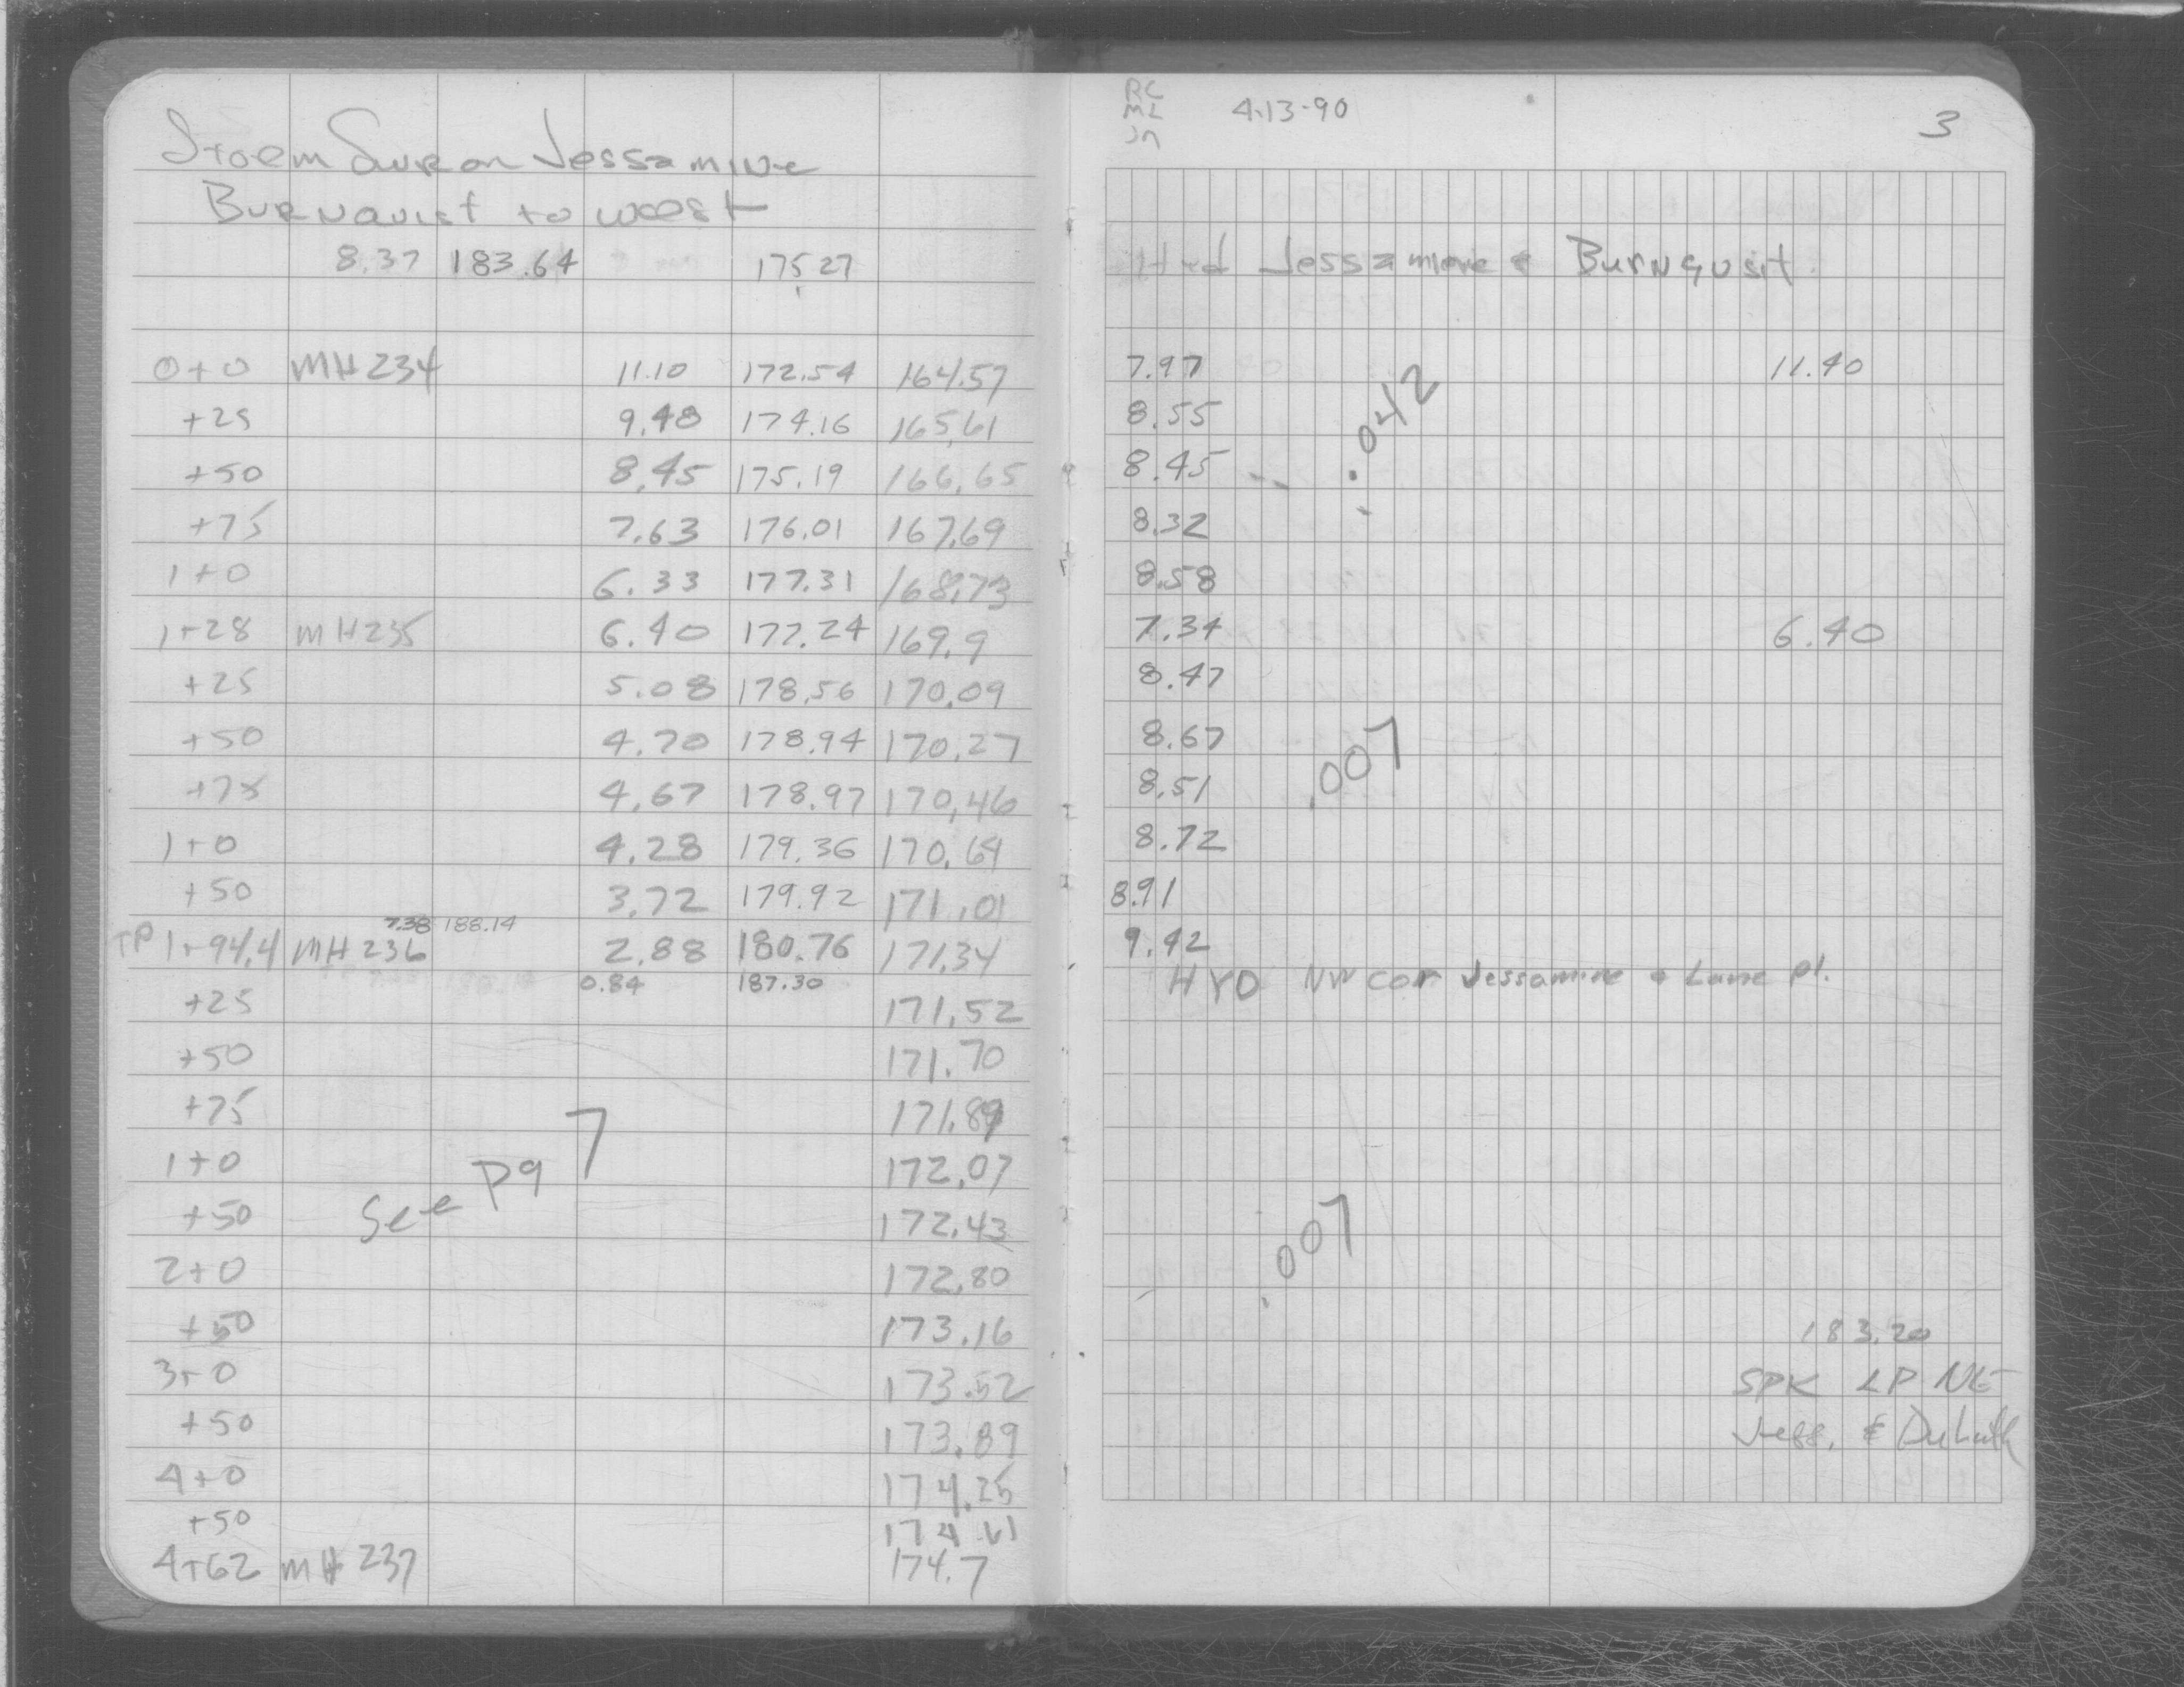 Stoem Swr on Jessamine
Burnquist to west
8.37 183.64 175.27
0+0 MH 234 11.10 172.54 164.57
+25 9.48 174.16 165.61
+50 8.45 175.19 166.65
+75 7.63 176.01 167.69
1+0 6.33 177.31 168.73
1+28 MH 235 6.40 177.24 169.9
+25 5.08 178.56 170.09
+50 4.70 178.94 170.27
+75 4.67 178.97 170.46
1+0 4.28 179.36 170.64
+50 3.72 179.92 171.01
7.38 188.14
TP 1+94.4 MH 236 2.88 180.76 171.34
0.84 187.30
+25 171.52
+50 171.70
+75 171.89
1+0 172.07
See Pg 7
+50 172.43
2+0 172.80
+50 173.16
3+0 173.52
+50 173.89
4+0 174.25
+50 174.61
4+62 MH 237 174.7
RC
ML
JM
4-13-90
3
Hyd Jessamine & Burnqusit
7.97 11.40
8.55
.042
8.45
8.32
8.58
7.34 6.40
8.47
8.67
.007
8.51
8.72
8.91
9.42
HYD NW cor Jessamine & Lane Pl.
.007
183.20
SPK LP NE
Jess. & Duluth